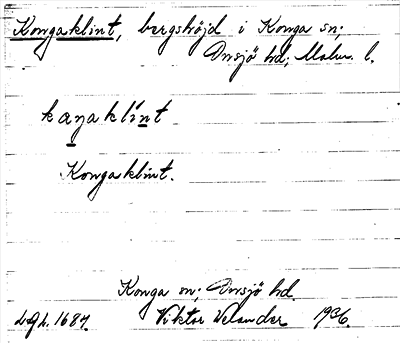 Kongaklint, bergshöjd i Konga sn;
Onsjö hd; Malm. l.
kæŋaklínt
Kongaklint.
Konga sn; Onsjö hd.
Viktor Velander 1936.